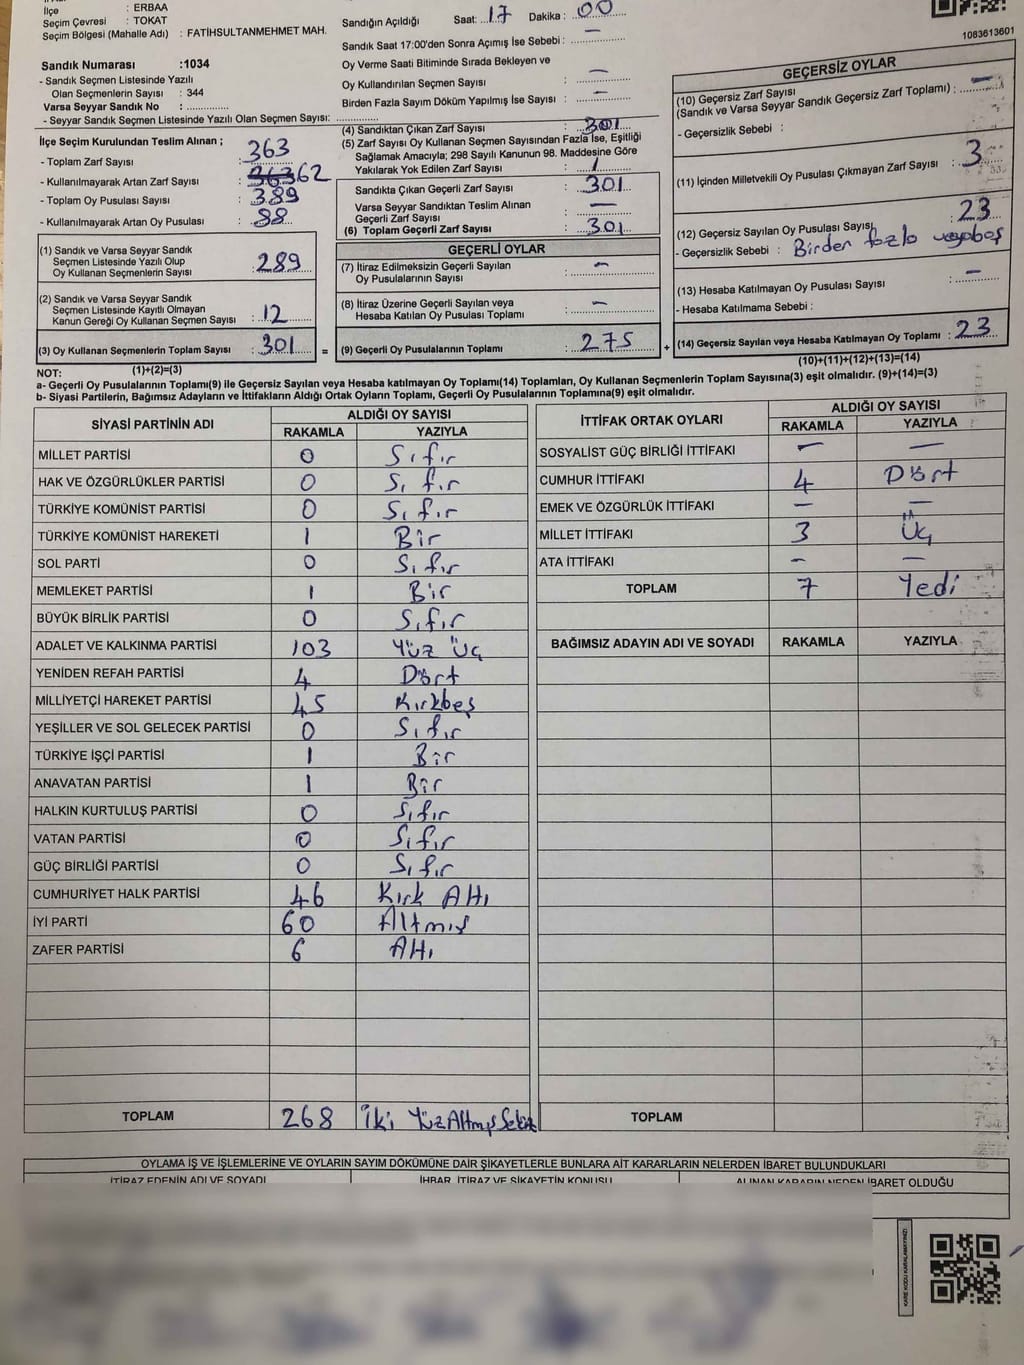 İlçe : ERBAA
Seçim Çevresi : TOKAT
Seçim Bölgesi (Mahalle Adı) : FATİHSULTANMEHMET MAH.
Sandık Numarası :1034
- Sandık Seçmen Listesinde Yazılı
Olan Seçmenlerin Sayısı : 344
Varsa Seyyar Sandık No : ..............
- Seyyar Sandık Seçmen Listesinde Yazılı Olan Seçmen Sayısı: ..............
İlçe Seçim Kurulundan Teslim Alınan ;
- Toplam Zarf Sayısı : 363
- Kullanılmayarak Artan Zarf Sayısı : 62
- Toplam Oy Pusulası Sayısı : 389
- Kullanılmayarak Artan Oy Pusulası : 88
(1) Sandık ve Varsa Seyyar Sandık
Seçmen Listesinde Yazılı Olup
Oy Kullanan Seçmenlerin Sayısı : 289
(2) Sandık ve Varsa Seyyar Sandık
Seçmen Listesinde Kayıtlı Olmayan
Kanun Gereği Oy Kullanan Seçmen Sayısı : 12
(3) Oy Kullanan Seçmenlerin Toplam Sayısı : 301 =
(1)+(2)=(3)
Sandığın Açıldığı Saat: 17 Dakika : 00
Sandık Saat 17:00'den Sonra Açımış İse Sebebi : —
Oy Verme Saati Bitiminde Sırada Bekleyen ve
Oy Kullandırılan Seçmen Sayısı : —
Birden Fazla Sayım Döküm Yapılmış İse Sayısı : —
(4) Sandıktan Çıkan Zarf Sayısı : 301
(5) Zarf Sayısı Oy Kullanan Seçmen Sayısından Fazla İse, Eşitliği
Sağlamak Amacıyla; 298 Sayılı Kanunun 98. Maddesine Göre
Yakılarak Yok Edilen Zarf Sayısı :
Sandıkta Çıkan Geçerli Zarf Sayısı : 301
Varsa Seyyar Sandıktan Teslim Alınan
Geçerli Zarf Sayısı : —
(6) Toplam Geçerli Zarf Sayısı : 301
GEÇERLİ OYLAR
(7) İtiraz Edilmeksizin Geçerli Sayılan
Oy Pusulalarının Sayısı : —
(8) İtiraz Üzerine Geçerli Sayılan veya
Hesaba Katılan Oy Pusulası Toplamı : —
(9) Geçerli Oy Pusulalarının Toplamı : 275 +
1083613601
GEÇERSİZ OYLAR
(10) Geçersiz Zarf Sayısı
(Sandık ve Varsa Seyyar Sandık Geçersiz Zarf Toplamı) : —
- Geçersizlik Sebebi :
(11) İçinden Milletvekili Oy Pusulası Çıkmayan Zarf Sayısı : 3
(12) Geçersiz Sayılan Oy Pusulası Sayısı : 23
- Geçersizlik Sebebi : Birden fazla veya boş
(13) Hesaba Katılmayan Oy Pusulası Sayısı : —
- Hesaba Katılmama Sebebi :
(14) Geçersiz Sayılan veya Hesaba Katılmayan Oy Toplamı : 23
(10)+(11)+(12)+(13)=(14)
NOT:
a- Geçerli Oy Pusulalarının Toplamı(9) ile Geçersiz Sayılan veya Hesaba katılmayan Oy Toplamı(14) Toplamları, Oy Kullanan Seçmenlerin Toplam Sayısına(3) eşit olmalıdır. (9)+(14)=(3)
b- Siyasi Partilerin, Bağımsız Adayların ve İttifakların Aldığı Ortak Oyların Toplamı, Geçerli Oy Pusulalarının Toplamına(9) eşit olmalıdır.
SİYASİ PARTİNİN ADI ALDIĞI OY SAYISI
RAKAMLA YAZIYLA
MİLLET PARTİSİ 0 Sıfır
HAK VE ÖZGÜRLÜKLER PARTİSİ 0 Sıfır
TÜRKİYE KOMÜNİST PARTİSİ 0 Sıfır
TÜRKİYE KOMÜNİST HAREKETİ 1 Bir
SOL PARTİ 0 Sıfır
MEMLEKET PARTİSİ 1 Bir
BÜYÜK BİRLİK PARTİSİ 0 Sıfır
ADALET VE KALKINMA PARTİSİ 103 Yüz Üç
YENİDEN REFAH PARTİSİ 4 Dört
MİLLİYETÇİ HAREKET PARTİSİ 45 Kırkbeş
YEŞİLLER VE SOL GELECEK PARTİSİ 0 Sıfır
TÜRKİYE İŞÇİ PARTİSİ 1 Bir
ANAVATAN PARTİSİ 1 Bir
HALKIN KURTULUŞ PARTİSİ 0 Sıfır
VATAN PARTİSİ 0 Sıfır
GÜÇ BİRLİĞİ PARTİSİ 0 Sıfır
CUMHURİYET HALK PARTİSİ 46 Kırk Altı
İYİ PARTİ 60 Altmış
ZAFER PARTİSİ 6 Altı
TOPLAM 268 İki Yüz Altmış Sekiz
İTTİFAK ORTAK OYLARI ALDIĞI OY SAYISI
RAKAMLA YAZIYLA
SOSYALİST GÜÇ BİRLİĞİ İTTİFAKI — —
CUMHUR İTTİFAKI 4 Dört
EMEK VE ÖZGÜRLÜK İTTİFAKI — —
MİLLET İTTİFAKI 3 Üç
ATA İTTİFAKI — —
TOPLAM 7 Yedi
BAĞIMSIZ ADAYIN ADI VE SOYADI RAKAMLA YAZIYLA
TOPLAM
OYLAMA İŞ VE İŞLEMLERİNE VE OYLARIN SAYIM DÖKÜMÜNE DAİR ŞİKAYETLERLE BUNLARA AİT KARARLARIN NELERDEN İBARET BULUNDUKLARI
İTİRAZ EDENİN ADI VE SOYADI İHBAR, İTİRAZ VE ŞİKAYETİN KONUSU ALINAN KARARIN NEDEN İBARET OLDUĞU
KARE KODU KARALAMAYINIZ!